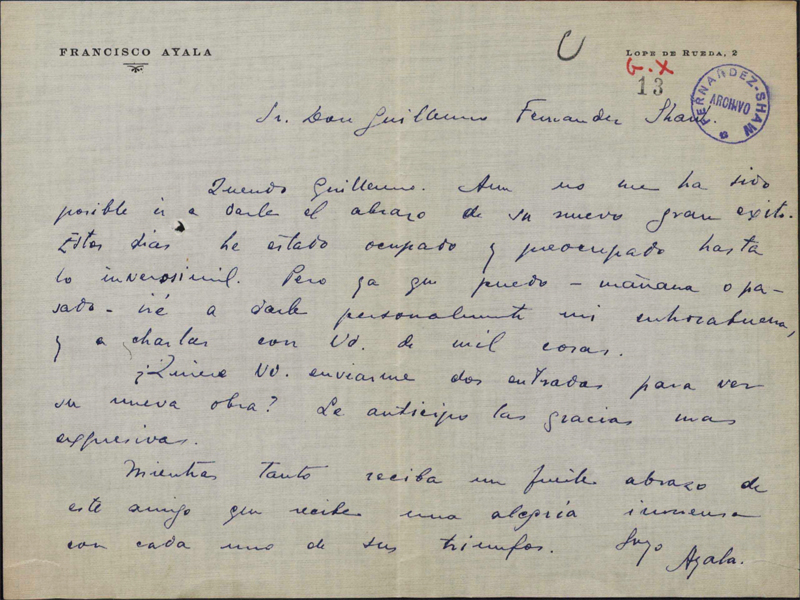 FRANCISCO AYALA
LOPE DE RUEDA, 2
G.X
13
FERNANDEZ-SHAW
ARCHIVO
Sr. Don Guillermo Fernandez Shaw.
Querido Guillermo. Aun no me ha sido
posible ir a darle el abrazo de su nuevo gran exito.
Estos dias he estado ocupado y preocupado hasta
lo inverosimil. Pero ya que puedo - mañana o pa-
sado - iré a darle personalmente mi enhorabuena,
y a charlar con Vd. de mil cosas.
¿Quiere Vd. enviarme dos entradas para ver
su nueva obra? Le anticipo las gracias mas
expresivas.
Mientras tanto reciba un fuerte abrazo de
este amigo que recibe una alegría inmensa
con cada uno de sus triunfos. Suyo
Ayala.